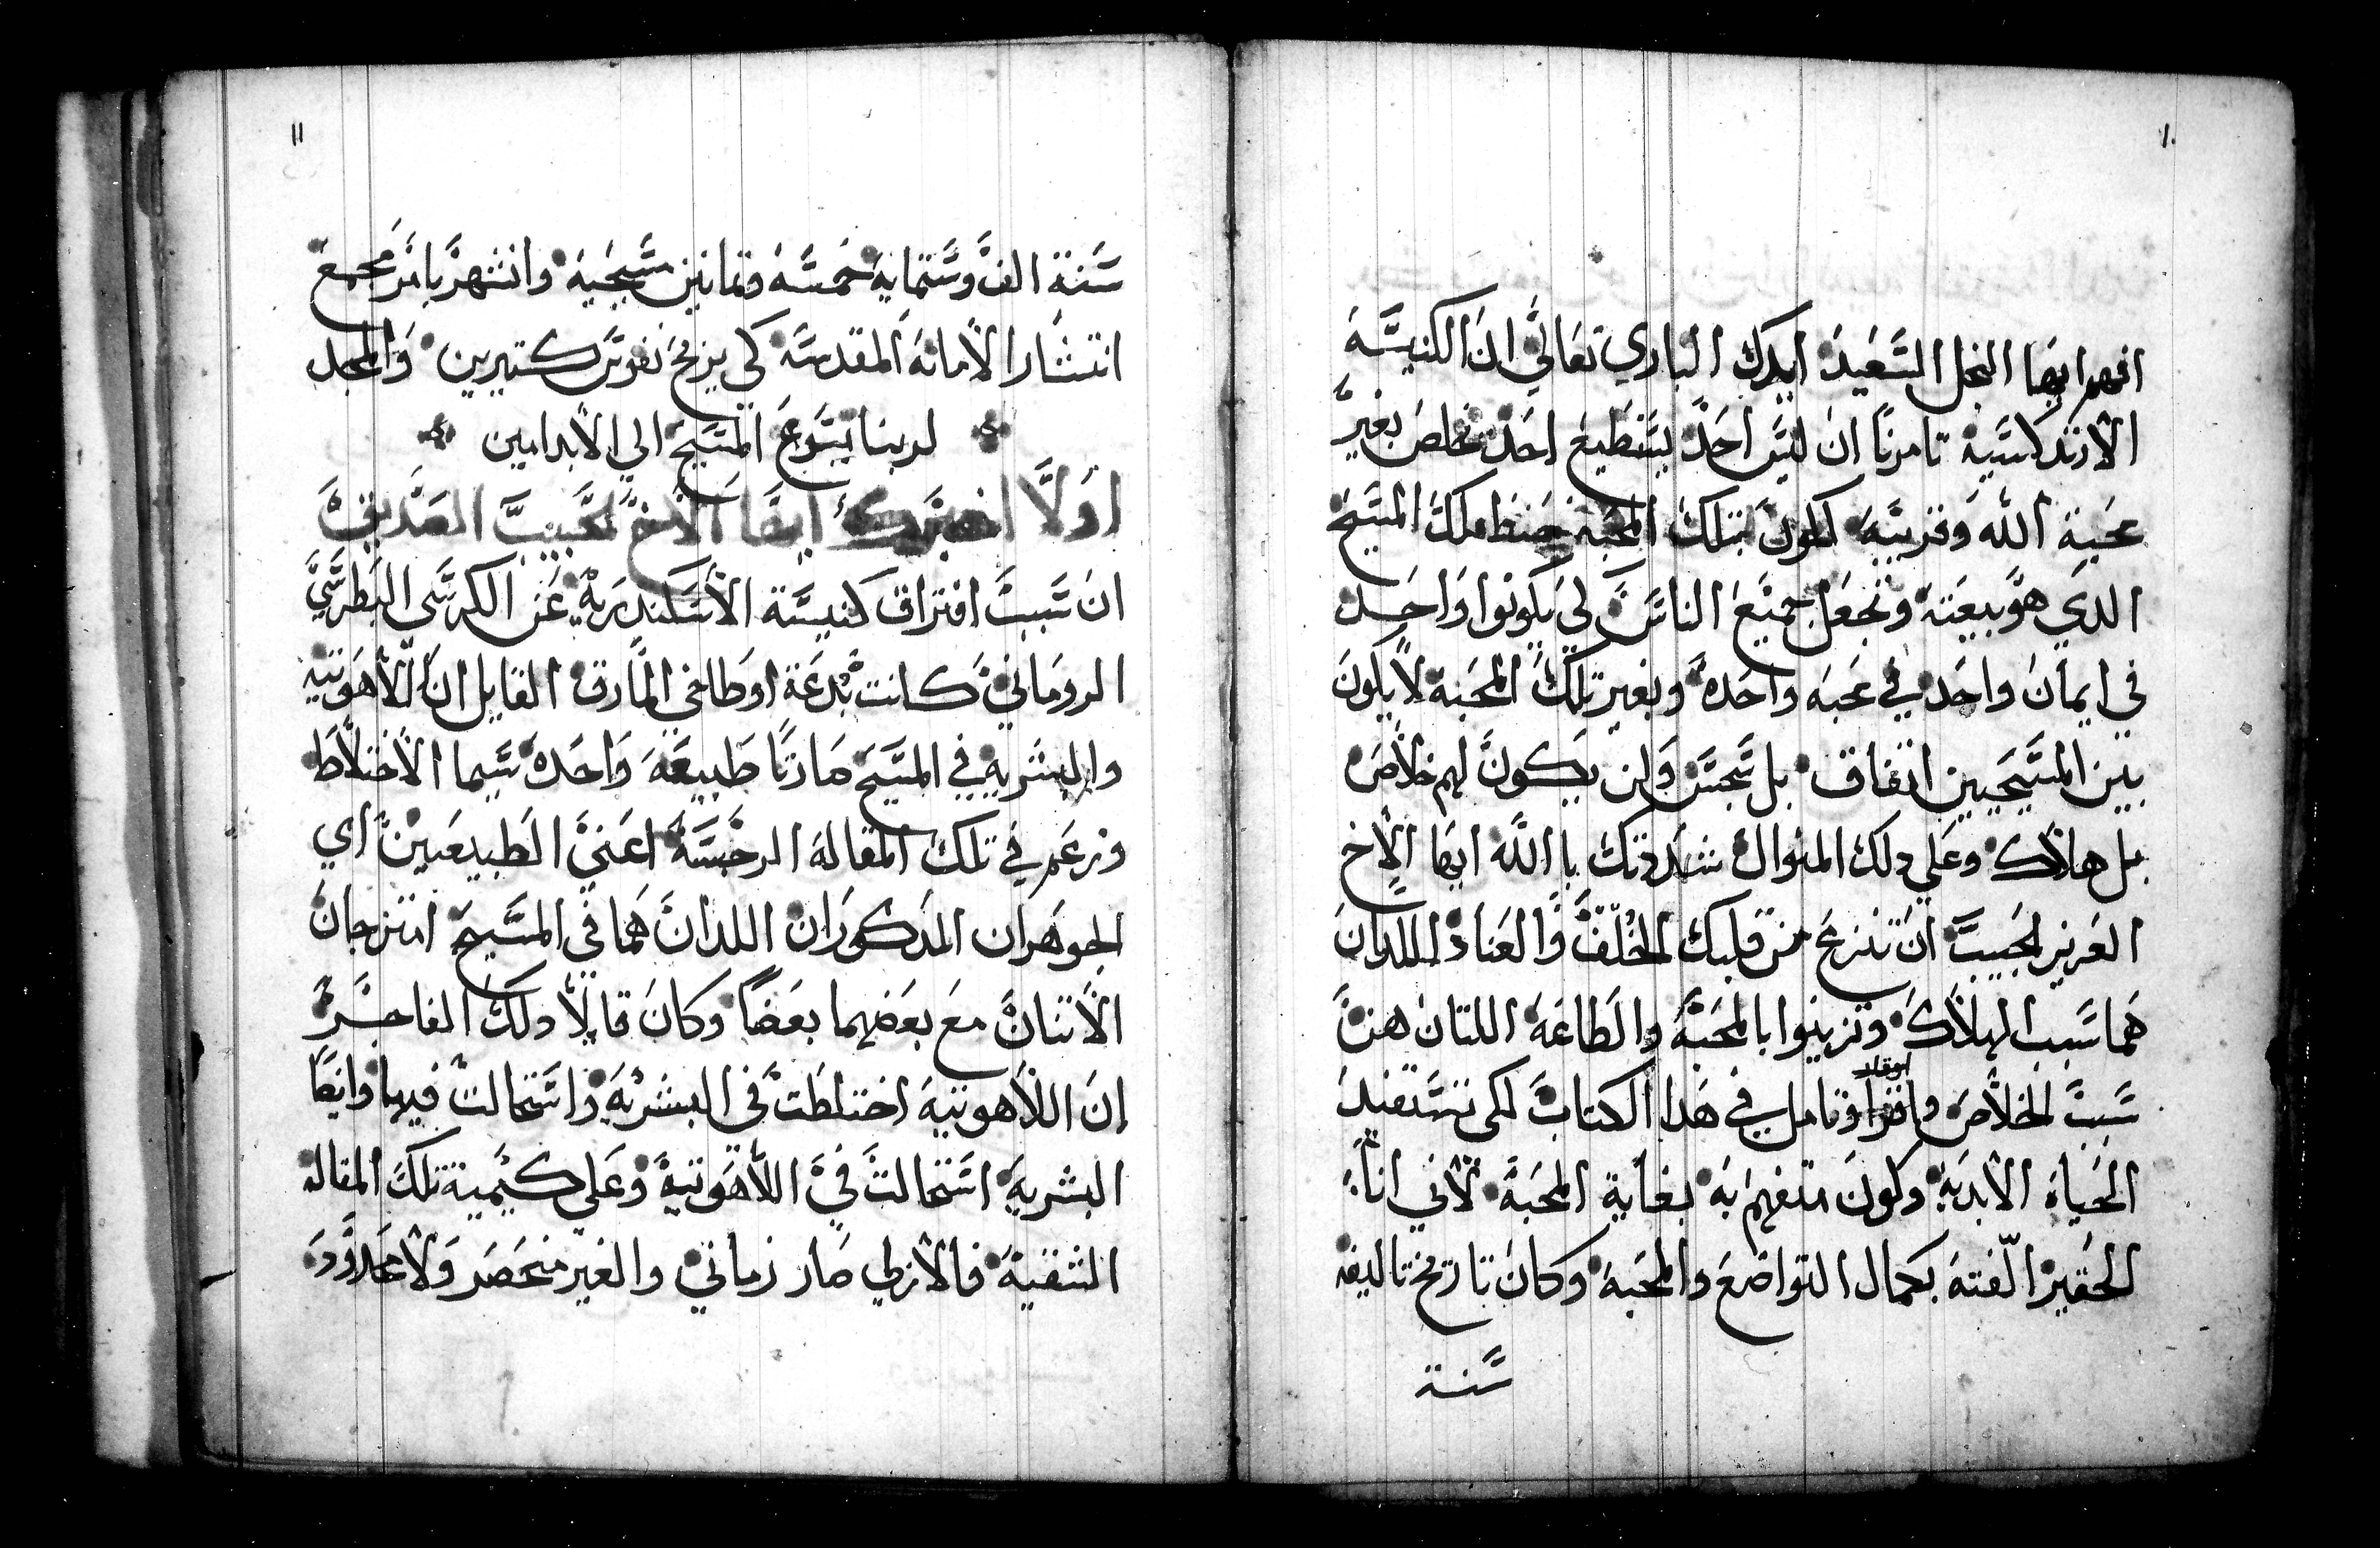 ١٠
افهم ايها النجل السعيد ايدك الباري تعالي ان الكنيسة
الارتدكسية تامرنا ان ليس احد يستطيع احد يخلص بغير
محبة الله وقريبه لكون بتلك المحبه حفظ ملك المسيح
الدي هو بيعته ونجعل جميع الناس لي يكونوا واحد
في ايمان واحد في محبه واحده وبغير تلك المحبة لا يكون
بين المسيحيين اتفاق بل تجسس ولن يكون لهم خلاص
بل هلاك وعلي دلك المنوال شددتك باالله ايها الاخ
العزيز الحبيب ان تنزع من قلبك الخلف والعناد اللدان
هما سبب الهلاك وتزينوا بالمحبة والطاعة اللتان هن
ابوقلد
سبب الخلاص واقرا وتامل في هدا الكتاب لكي تستفيد
الحياة الابدية وكون متفهم به بغاية المحبة لاني انا
الحقير الفته بكمال التواضع والمحبة وكان تاريخ تاليفه
سنة
١١
سنة الف وستماية خمسة وتمانين مسيحية وانتهر بامر مجمع
انتشار الامانة المقدسة كي يربح نفوس كتيرين والمجد
لربنا يسوع المسيح الي الابد امين
اولا اخبرك ايها الاخ الحبيب الصديق
ان سبب افتراق كنيسة الاسكندرية عن الكرسي البطرسي
الروماني كانت بدعة اوطاخي المارق القايل ان اللاهوتية
والبشرية في المسيح صارتا طبيعة واحده سيما الاختلاط
وزعم في تلك المقالة الرجسة اعني الطبيعيين اي
الجوهران المدكوران اللدان هما في المسيح امتزجان
الاتنان مع بعضهما بعضا وكان قايلا دلك الفاجر
ان اللاهوتية اختلطت في البشرية واستحالت فيها وايضا
البشرية استحالت في اللاهوتية وعلي كيمية تلك المقالة
الشقية فالازلي صار زماني والغير منحصر ولا محدود